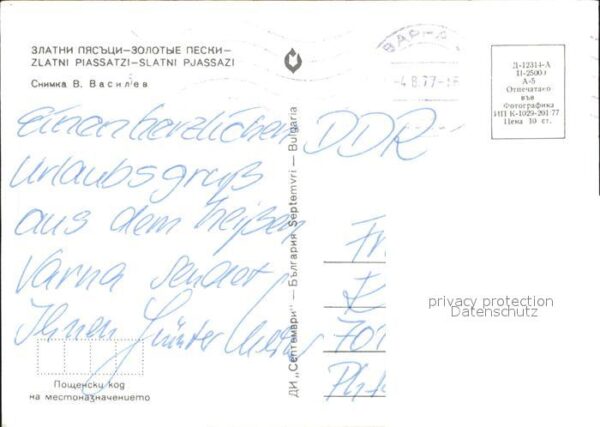 ЗЛАТНИ ПЯСЪЦИ—ЗОЛОТЫЕ ПЕСКИ—
ZLATNI PIASSATZI—SLATNI PJASSAZI
Снимка В. Василев
Einen herzlichen
Urlaubsgruß
aus dem heißen
Varna sendet
Ihnen Günter
Пощенски код
на местоназначението
ДИ „Септември" — България Septemvri — Bulgaria
ВАР
-4.8.77
Д-12314-А
II-2500
А-5
Отпечатано
във
Фотографика
ИП К-1029-201 77
Цена 10 ст.
DDR
Fr
701
privacy protection
Datenschutz